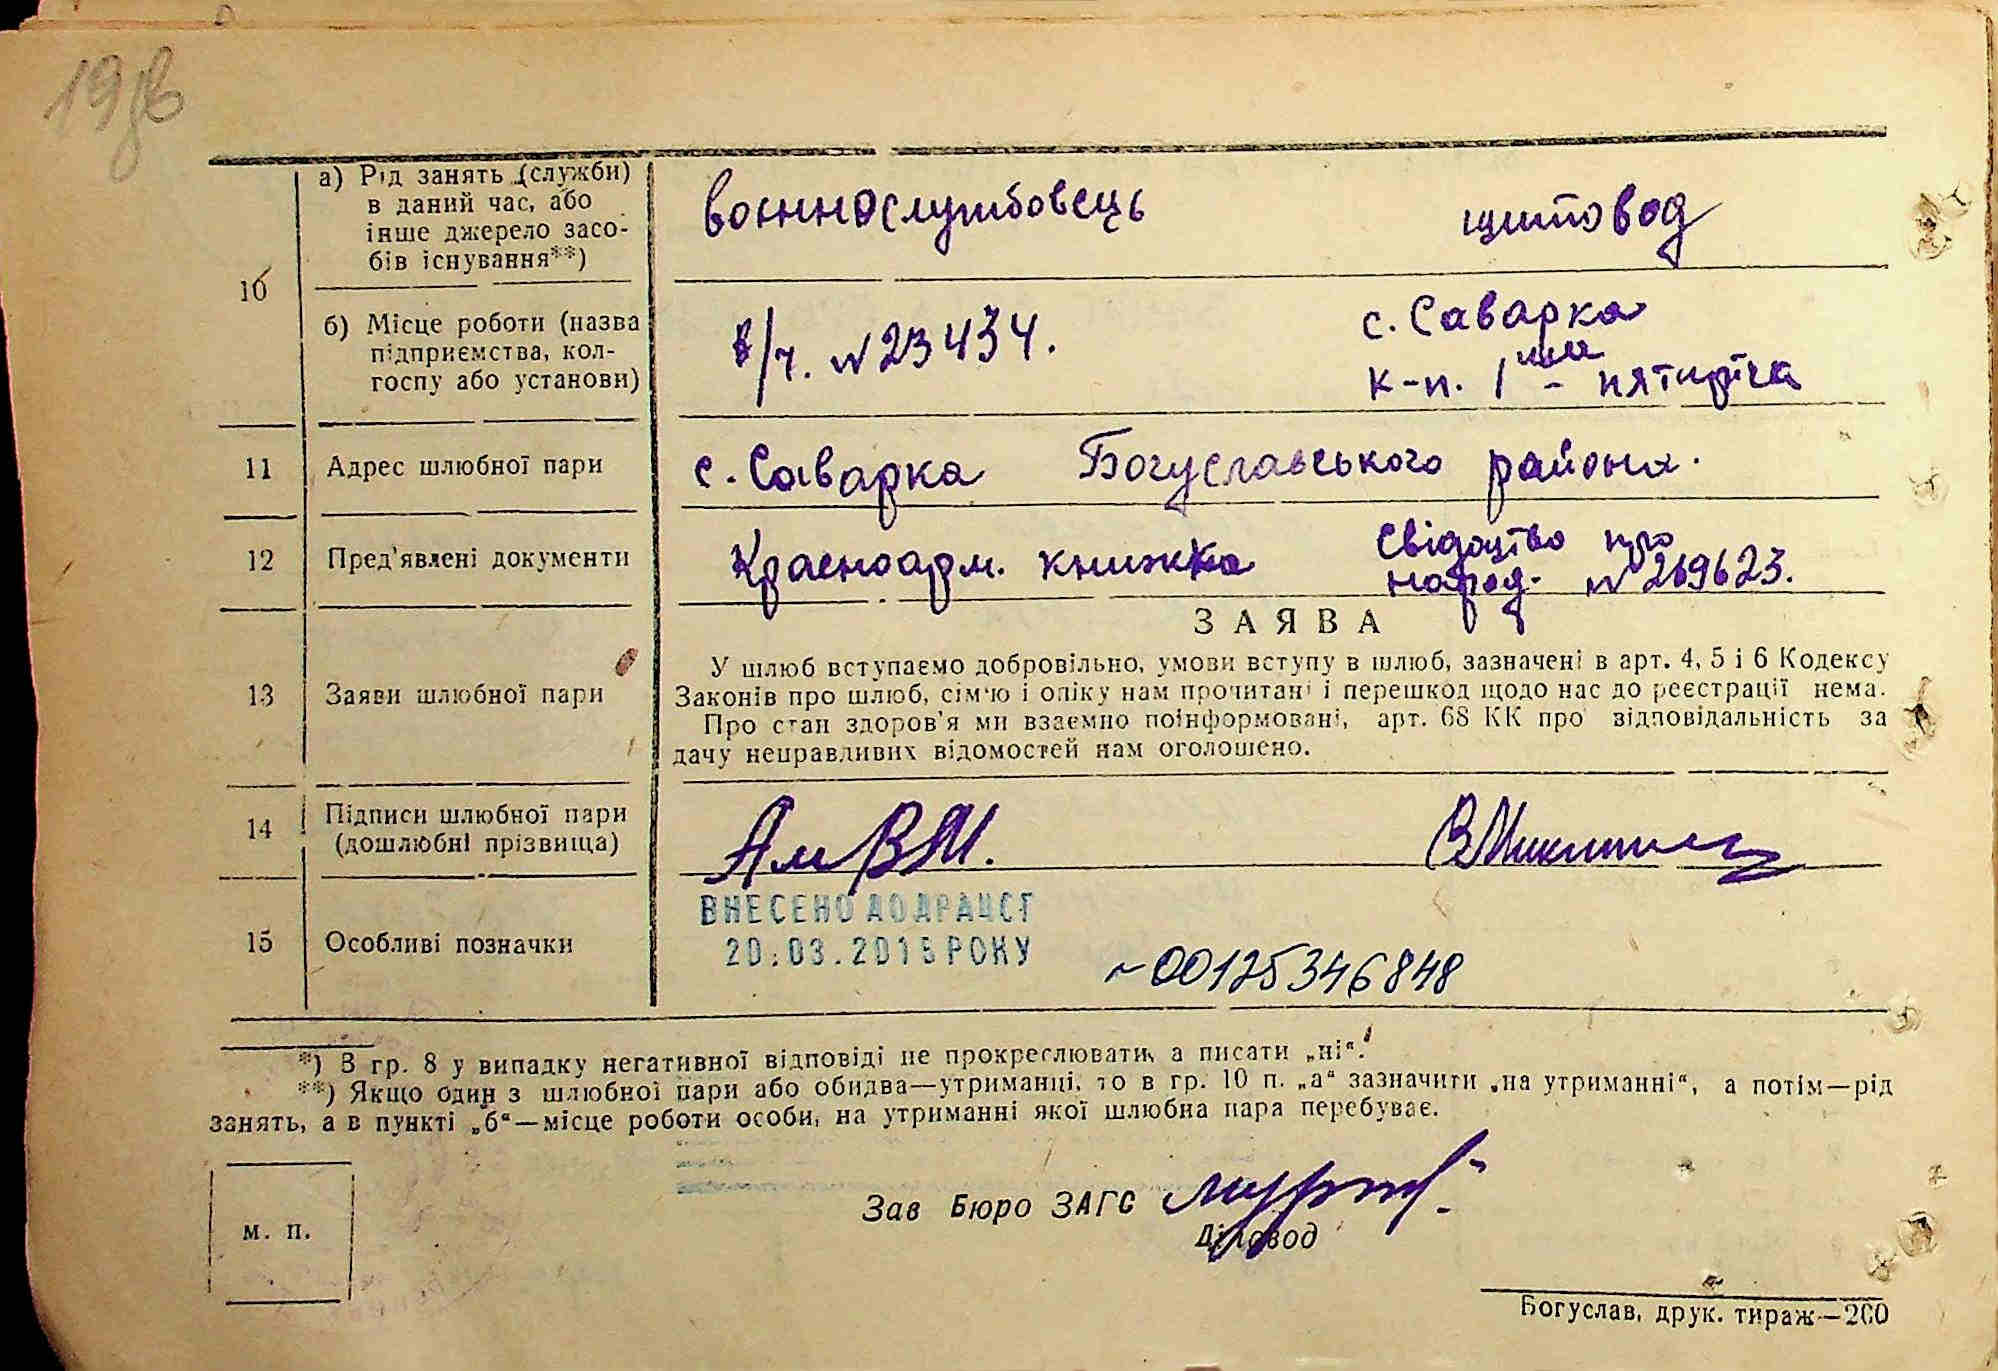 19 зв
10
а) Рід занять (служби)
в даний час, або
інше джерело засо-
бів існування**)
воєннослужбовець
щитовод
б) Місце роботи (назва
підприємства, кол-
госпу або установи)
в/ч. N 23434.
с. Саварка
к-п. 1 ша - пятиріча
11
Адрес шлюбної пари
с. Саварка Богуславського района.
12
Пред'явлені документи
Красноарм. книжка
Свідоцтво про
народ. N 269623.
13
Заяви шлюбної пари
ЗАЯВА
У шлюб вступаємо добровільно, умови вступу в шлюб, зазначені в арт. 4, 5 і 6 Кодексу
Законів про шлюб, сім'ю і опіку нам прочитані і перешкод щодо нас до реєстрації нема.
Про стан здоров'я ми взаємно поінформовані, арт. 68 КК про відповідальність за
дачу неправдивих відомостей нам оголошено.
14
Підписи шлюбної пари
(дошлюбні прізвища)
15
Особливі позначки
ВНЕСЕНО ДО ДРАЦСГ
20.03.2015 РОКУ
~00125346848
*) З гр. 8 у випадку негативної відповіді не прокреслювати, а писати „ні“.
**) Якщо один з шлюбної пари або обидва—утриманці, то в гр. 10 п. „а“ зазначити „на утриманні“, а потім—рід
занять, а в пункті „б“—місце роботи особи, на утриманні якої шлюбна пара перебуває.
м. п.
Зав Бюро ЗАГС
Діловод
Богуслав, друк. тираж—200